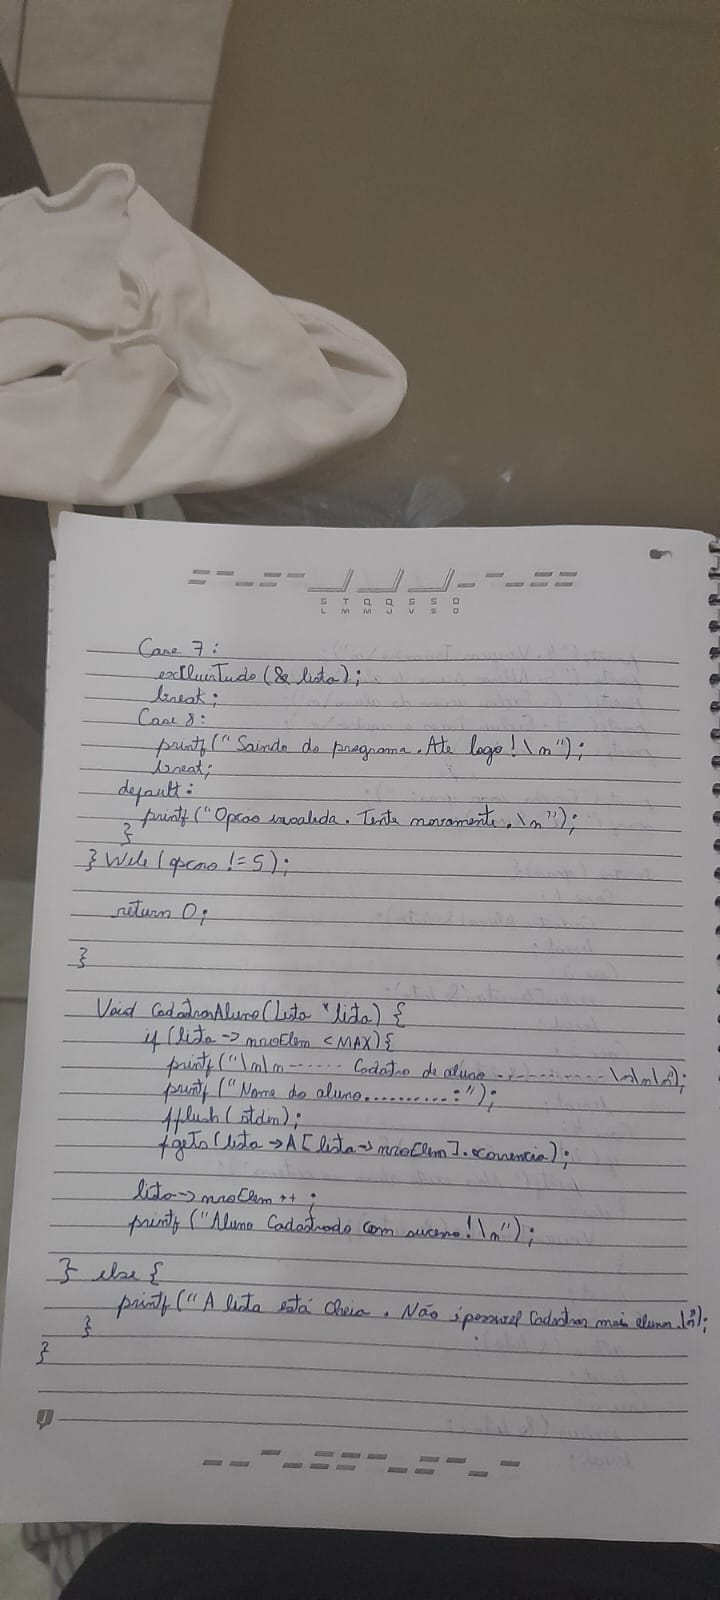 S T Q Q S S D
L M M J V S D
Case 7:
excluirTudo (& lista);
break;
Case 8:
printf (" Saindo do programa. Ate logo! \n");
break;
default:
printf ("Opcao invalida. Tente novamente. \n");
}
} Wile (opcao != 5);
return 0;
}
Void CadastrarAluno (Lista *lista) {
if (lista -> nroElem < MAX) {
printf ("\n\n ------ Cadatro de aluno ------------ \n\n\n");
printf ("Nome do aluno..........:");
fflush (stdin);
fgets (lista -> A [lista -> nroElem]. ocorrencia);
lista -> nroElem ++ ;
printf ("Aluno Cadastrado com sucesso! \n");
} else {
printf (" A lista está cheia. Não é possivel Cadastrar mais alunos. \n");
}
}